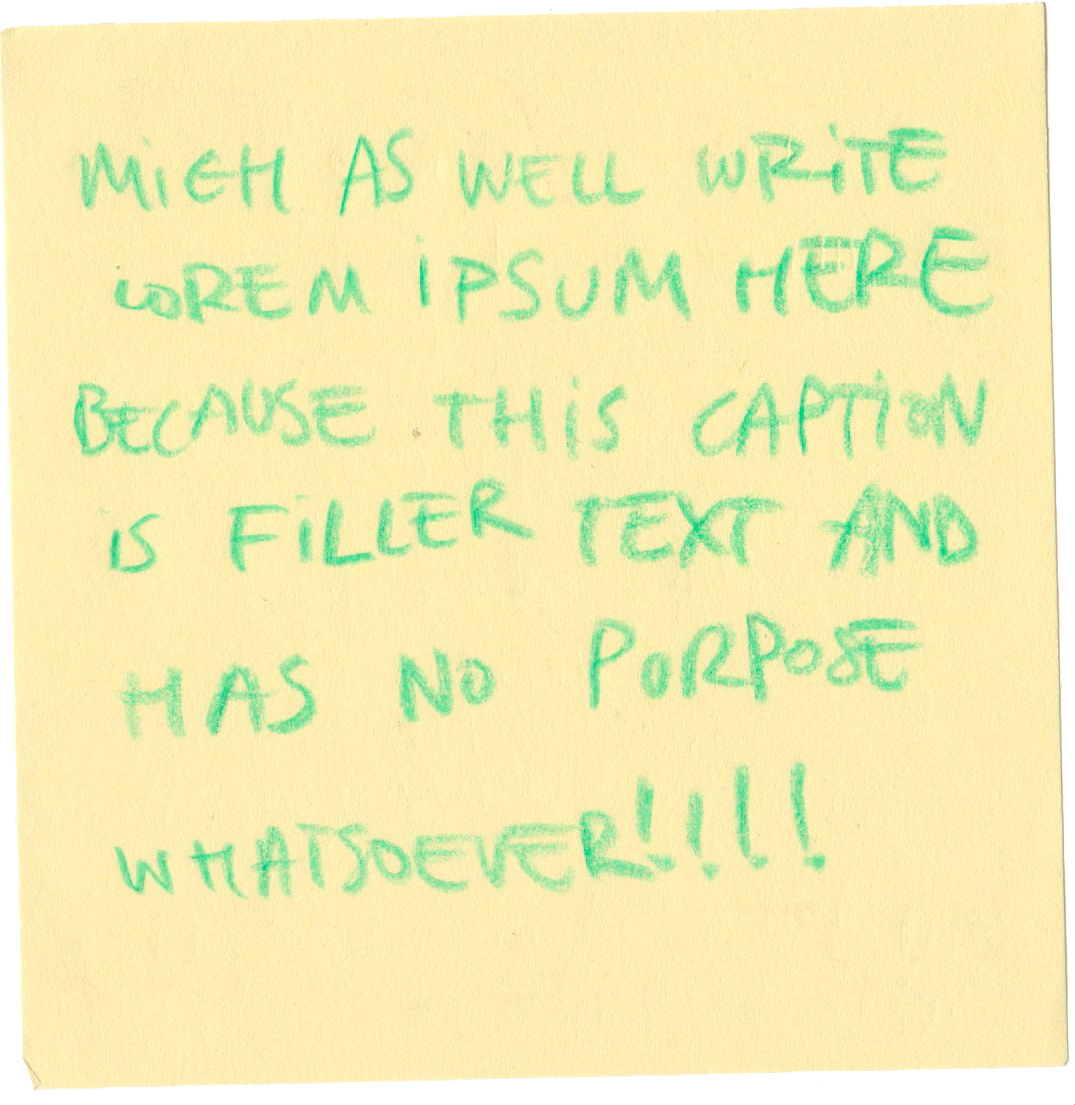 MiGH AS WELL WRiTE
LOREM iPSUM HERE
BECAUSE THiS CAPTiON
iS FiLLER TEXT AND
HAS NO PORPOSE
WHATSOEVER!!!!